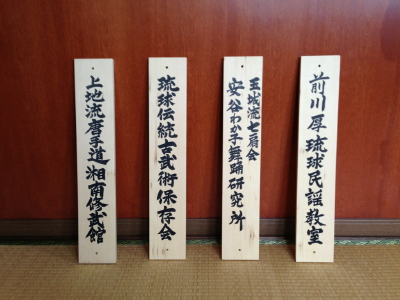 上地流唐手道 湘南修武館
琉球伝統古武術保存会
玉城流七扇会
安谷わか子舞踊研究所
前川厚琉球民謡教室